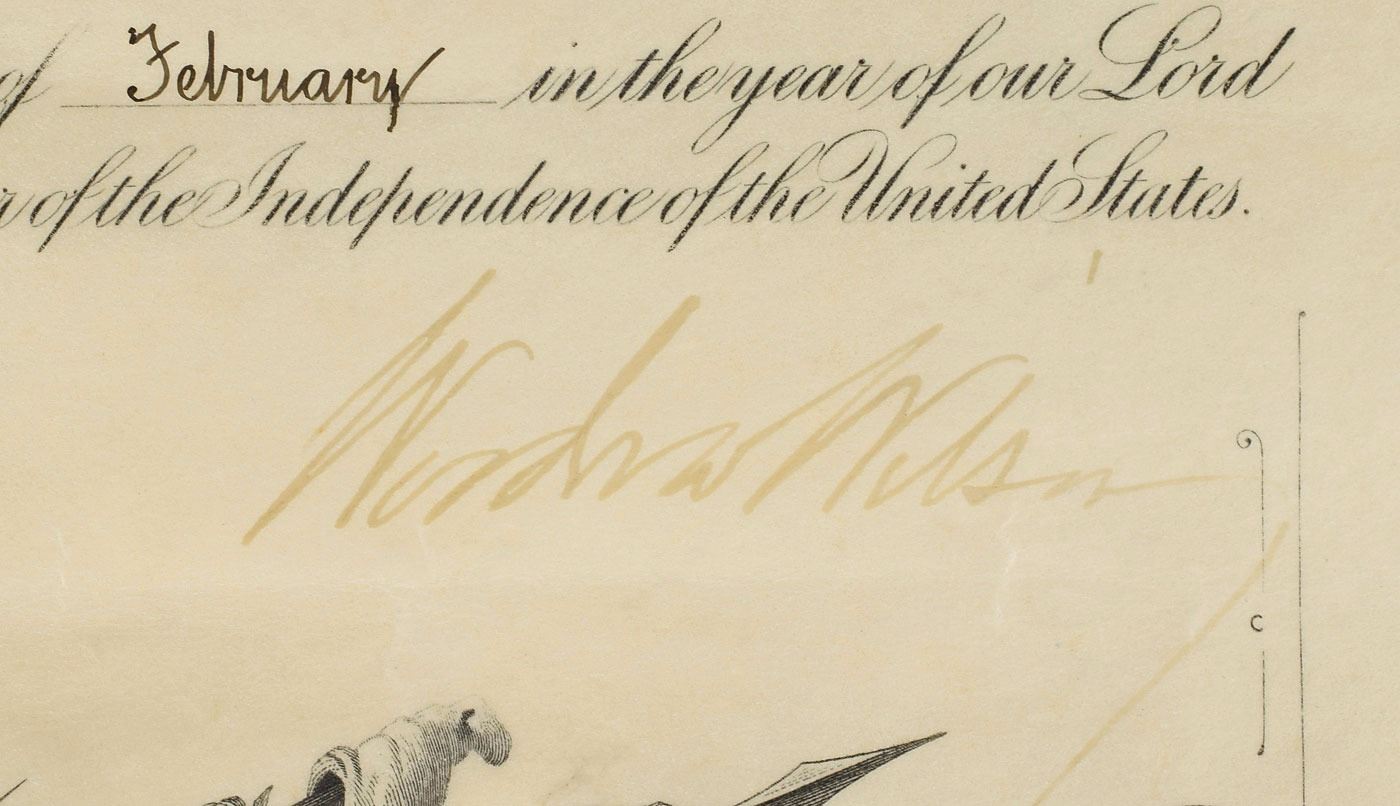 of February in the year of our Lord
r of the Independence of the United States.
Woodrow Wilson
C